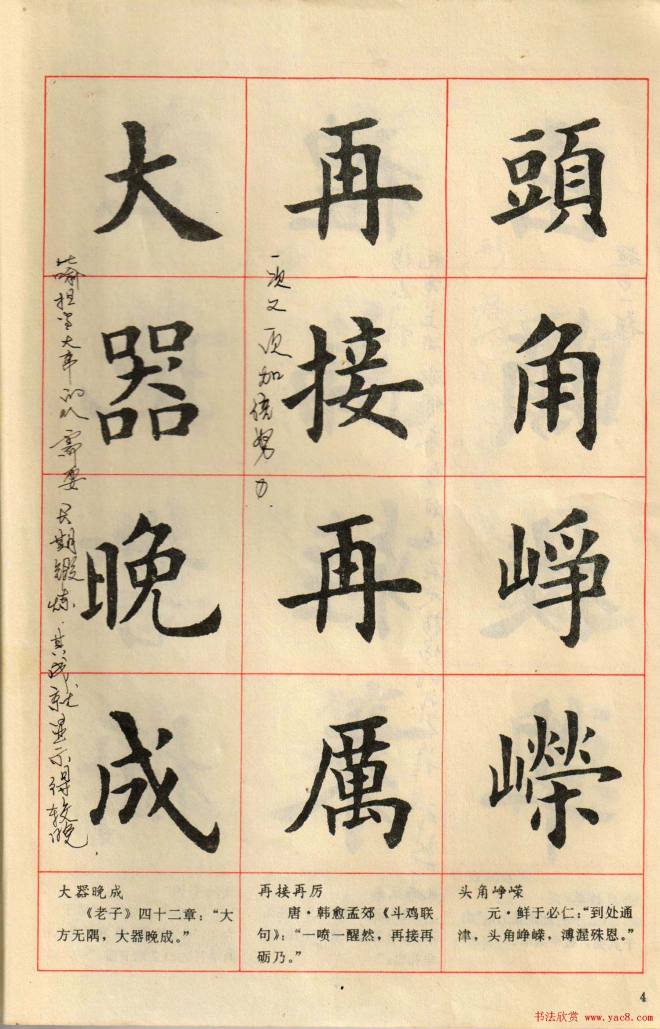 頭角崢嶸
再接再厲
大器晚成
一次又一次加倍努力.
比喻担当大事的人需要长期锻炼.其成就显示得较晚.
大器晚成
《老子》四十二章：“大
方无隅，大器晚成。”
再接再厉
唐·韩愈孟郊《斗鸡联
句》：“一喷一醒然，再接再
砺乃。”
头角峥嵘
元·鲜于必仁：“到处通
津，头角峥嵘，溥渥殊恩。”
4
书法欣赏 www.yac8.com